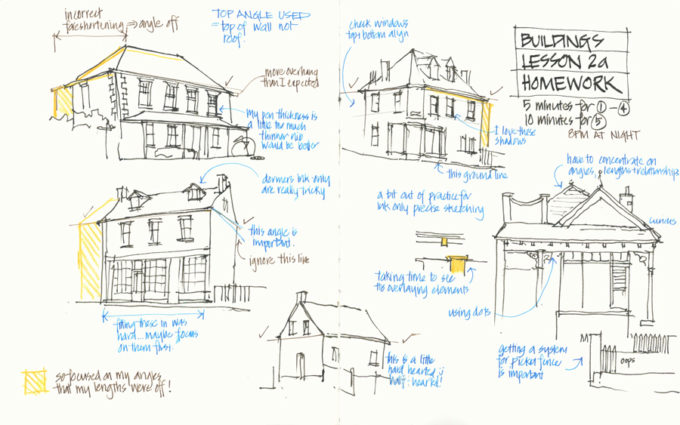 incorrect
foreshortening ⇒ angle off
TOP ANGLE USED
= top of wall not
roof.
more overhang
than I expected
My pen thickness is
a little too much
thinner nib
would be better
check windows
top & bottom align
I love these
shadows
this ground line
BUILDINGS
LESSON 2a
HOMEWORK
5 minutes for ① – ④
10 minutes for ⑤
8PM AT NIGHT
dormers ink only
are really tricky
this angle is
important.
ignore this line
fitting these in was
hard... maybe focus
on them first
a bit out of practice for
ink only precise sketching
taking time to see
the overlaying elements
using dots
have to concentrate on
angles, lengths + relationships
getting a system
for picket fence
is important
oops
this is a little
half hearted!
so focused on my angles
that my lengths were off!